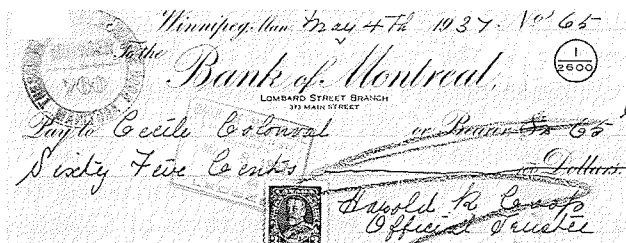 Winnipeg, Man May 4th 1937 No 65
To the
Bank of Montreal,
1
2600
LOMBARD STREET BRANCH
373 MAIN STREET
Pay to Cecile or Bearer 65
Sixty Five Cents Dollars
Harold R Coop
Official Trustee